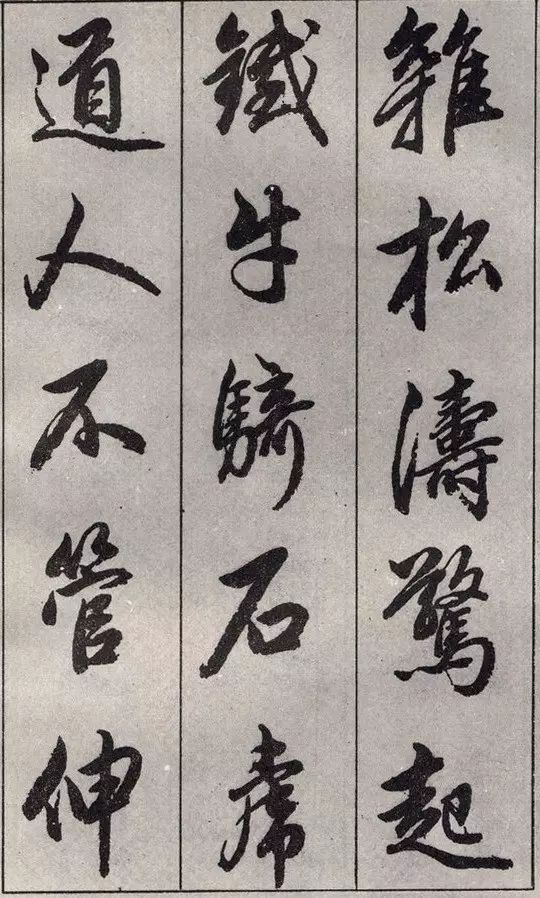 雜松濤驚起
鐵牛騎石席
道人不管伸